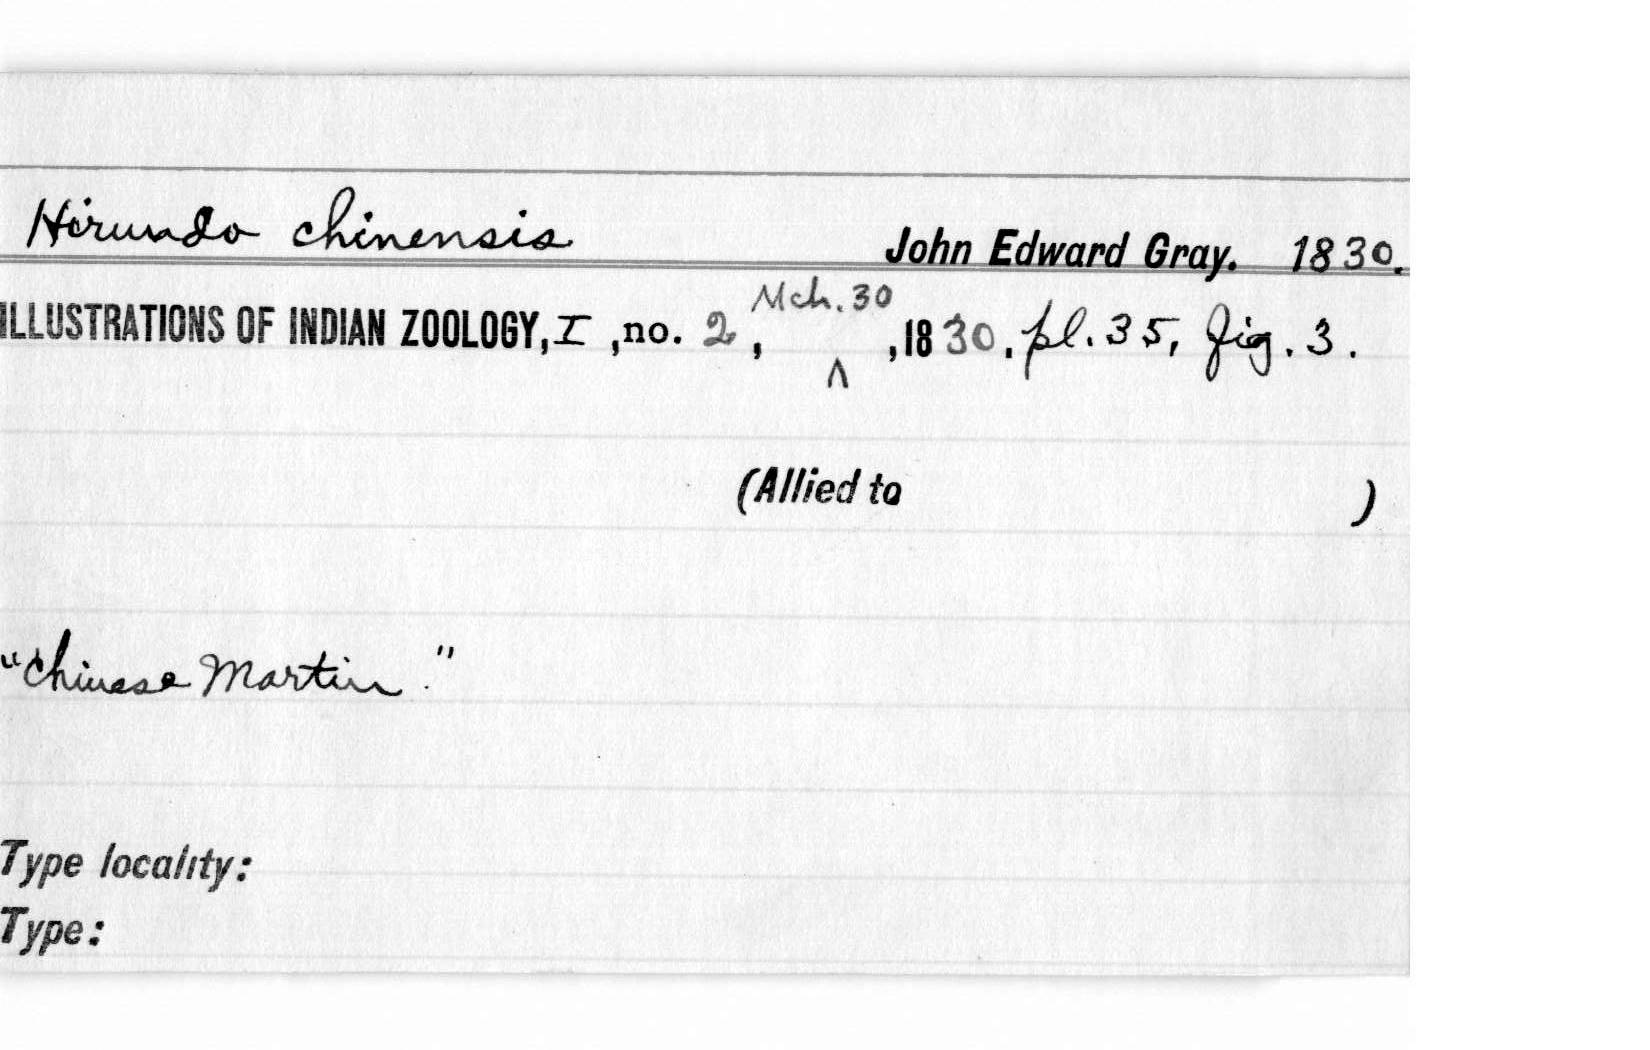 Hirundo chinensis John Edward Gray. 1830.
Mch. 30
ILLUSTRATIONS OF INDIAN ZOOLOGY, I , no. 2 , ^ , 1830, pl. 35, fig. 3.
(Allied to )
"Chinese Martin."
Type locality:
Type: